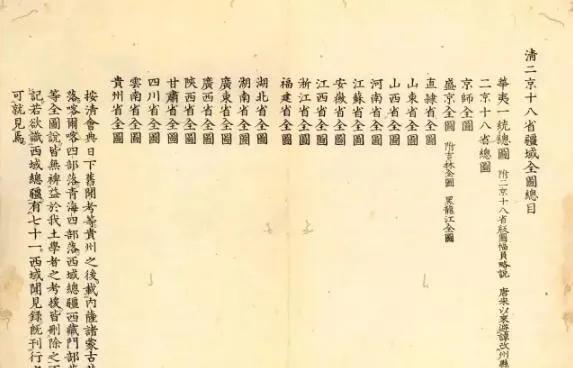 清二京十八省疆域全圖總目
華夷一統總圖 附二京十八省総圖幅員略說 唐宋以來避諱改州縣
二京十八省總圖
京師全圖
盛京全圖 附吉林全圖 黑龍江全圖
直隷省全圖
山東省全圖
山西省全圖
河南省全圖
江蘇省全圖
安徽省全圖
江西省全圖
浙江省全圖
福建省全圖
湖北省全圖
湖南省全圖
廣東省全圖
廣西省全圖
陝西省全圖
甘肅省全圖
四川省全圖
雲南省全圖
貴州省全圖
按清會典日下舊聞考等貴州之後載內薩諸蒙古
落喀爾喀四部落青海四部落西域總疆西藏門部
等全圖說皆無裨益於我土學者之考據皆刪除之
記若欲識西域總疆有七十一西域聞見錄旣刊行
可就見焉